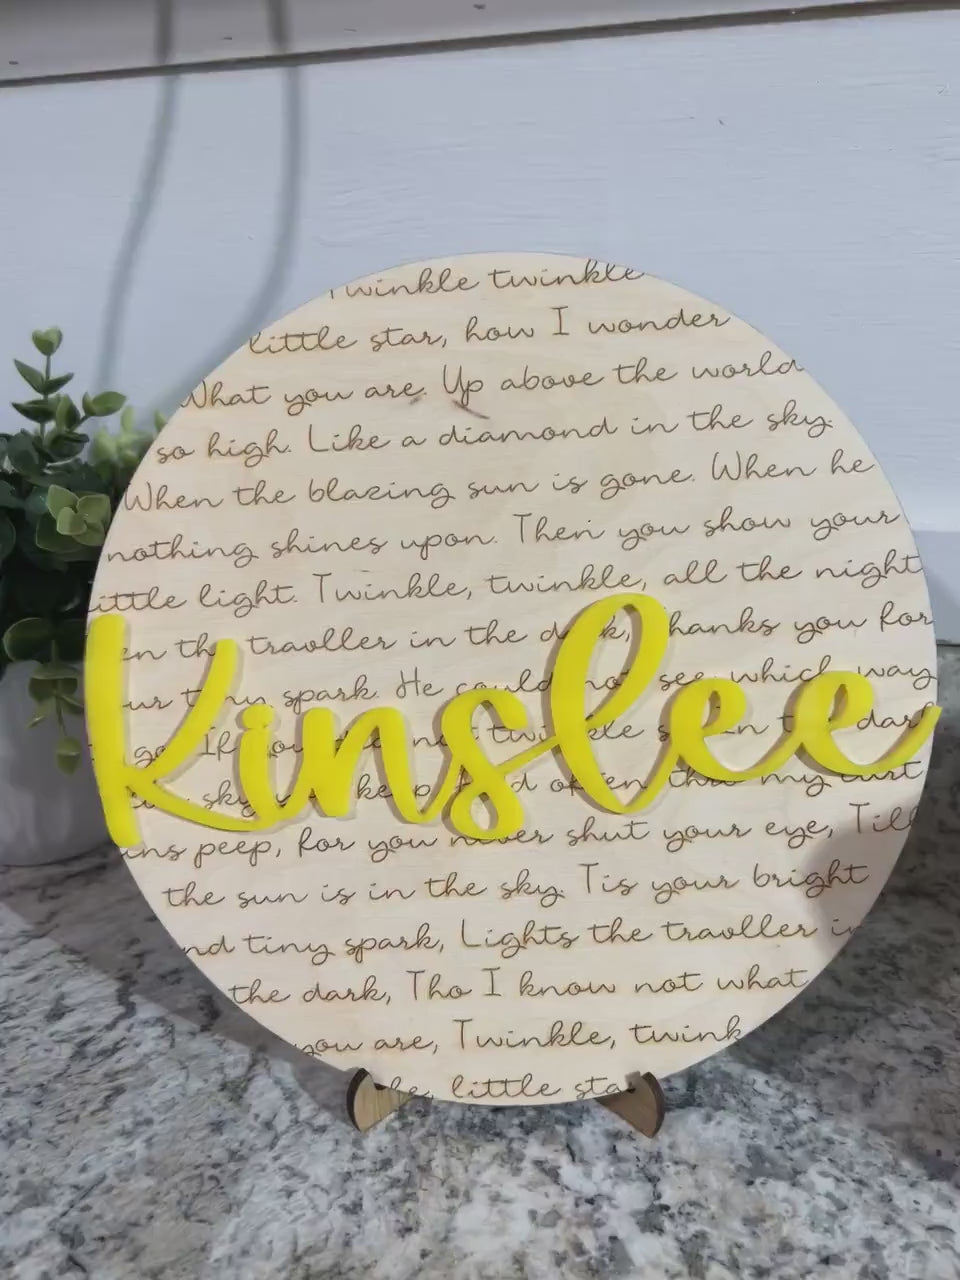 Twinkle twinkle
little star, how I wonder
What you are. Up above the world
so high. Like a diamond in the sky.
When the blazing sun is gone. When he
nothing shines upon. Then you show your
little light. Twinkle, twinkle, all the night
en th travller in the dark, Thanks you for
ur tiny spark. He could not see which way
go If you the not twinkle so in the dark
sky you keep And often thro my curt
Kinslee
ins peep, for you never shut your eye, Till
the sun is in the sky. Tis your bright
nd tiny spark, Lights the travller in
the dark, Tho I know not what
you are, Twinkle, twink
le, little star